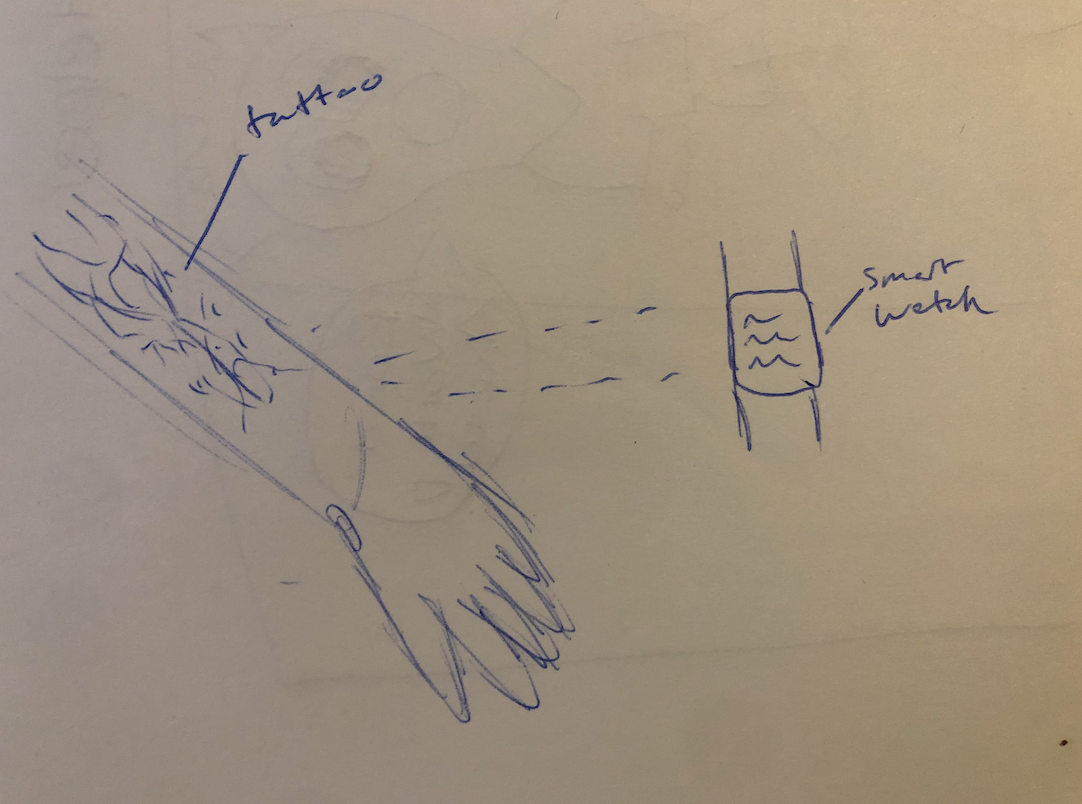 tattoo
smart
watch